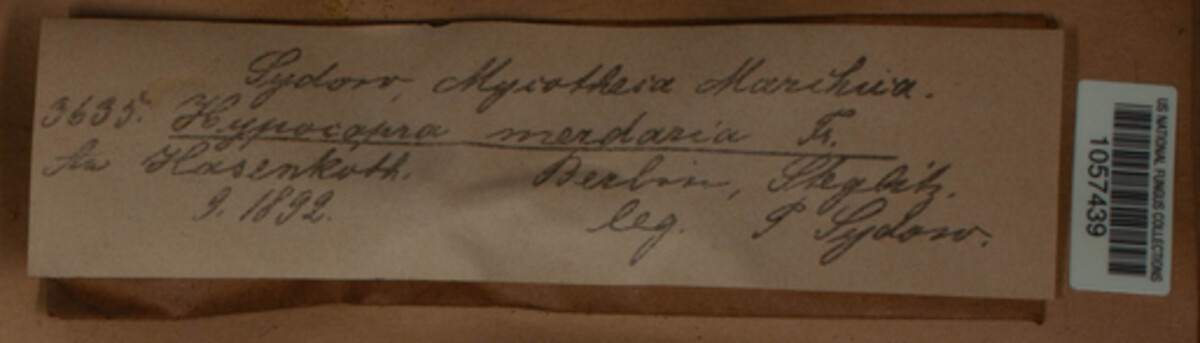 Sydow, Mycotheca Marchica.
3635. Hypocopra merdaria Fr.
An Hasenkoth. Berlin, Steglitz.
9. 1892. leg. P Sydow.
US NATIONAL FUNGUS COLLECTIONS
1057439